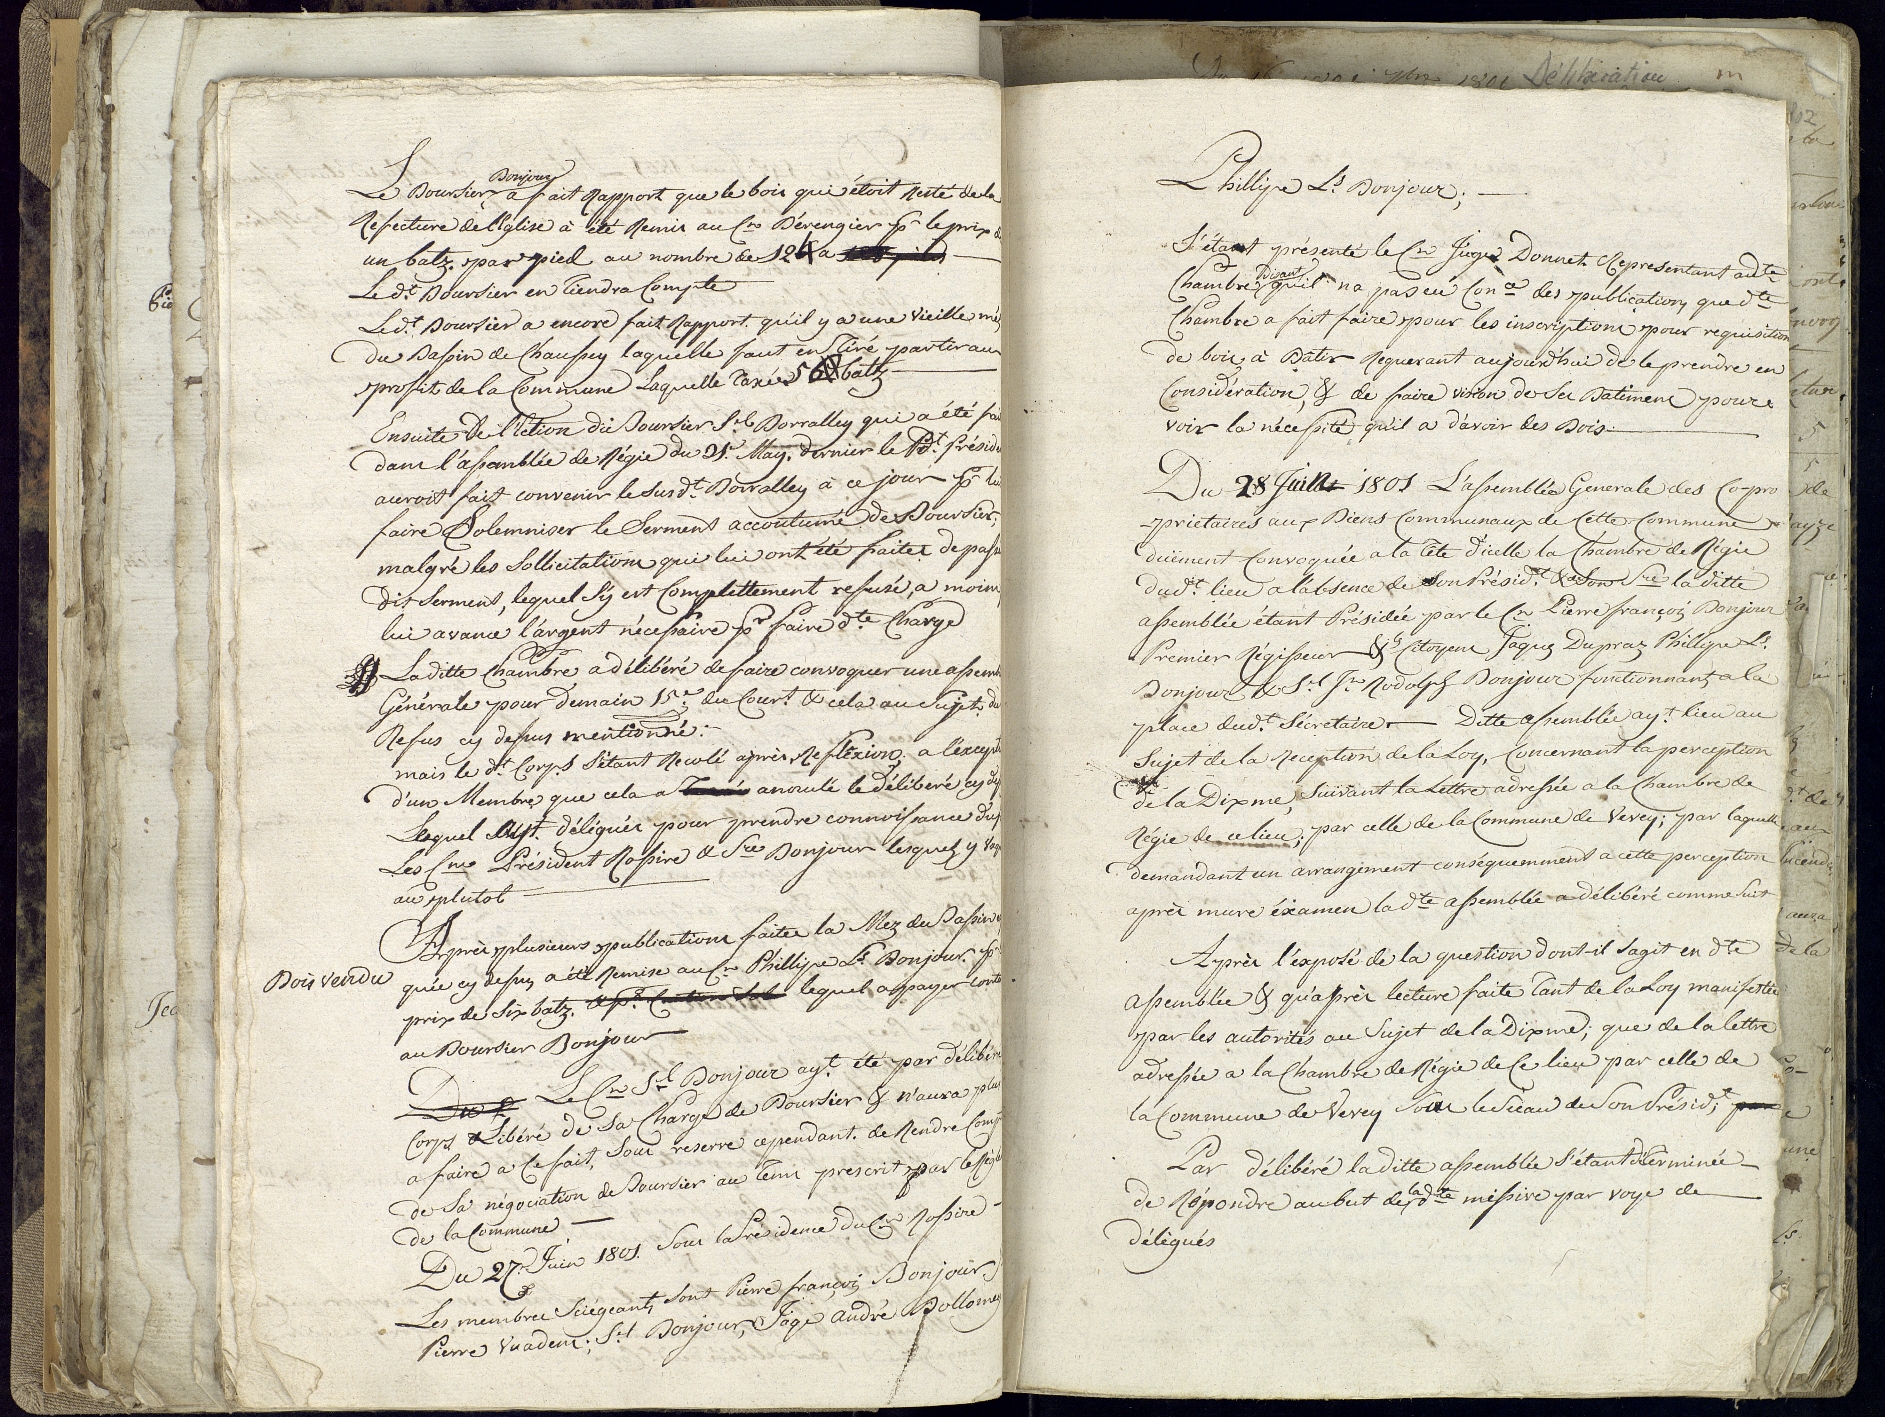 Le Boursier Bonjour a fait Rapport que le bois qui étoit Resté de la
Refecture de l'église à été Remis au Cn Bérengier pr le prix d
un batz par pied au nombre de 124 a
Le dt Boursier en Tiendra Compte
Le dt Boursier a encore fait Rapport qu'il y a une vieille mé
du Bassin de Chaussey laquelle faut en Tiré partir au
profit de la Commune Laquelle Taxée 56 batz
Ensuite de l'Ection du Boursier Sl Borralley qui a été fai
dans l'assemblée de Régie du 31e May dernier le Bt Présid
auroit fait convenir le susdt Borralley à ce jour pr lui
faire Solemniser le Serment accoutumé de Boursier,
malgré les Sollicitations qui lui ont été faites de pass
dit Serment, lequel S'y est Complettement refusé, a moins
lui avance l'argent nécessaire pr faire dte Charge
La ditte Chambre a délibéré de faire convoquer une assem
Générale pour demain 15e du Court & cela au Sujet du
Refus cy dessus mentionné.
mais le dt Corps S'étant Recolé après Reflexion, a l'except
d'un Membre que cela a anoulé le délibéré cy de
Lequel Ayt déléguér pour prendre connoissance du
Les Cns Président Rossire & Sre Bonjour lesquels y
au plutot
Après plusieurs publications faites la Mez du Bassin
Bois vendu
quée cy dessus a été Remise au Cn Phillipe Ls Bonjour pr
prix de Six batz lequel a payer conte
au Boursier Bonjour
Le Cn Sl Bonjour ayt été par délibéré
Corps Libéré de Sa Charge de Boursier & n'aura plus
a faire a Ce fait, Sous reserve cependant de Rendre Comp
de Sa négociation de Boursier au Tems prescrit par
de la Commune
Du 27e Juin 1801. Sous la Présidence du Cn Rossire
Les membres Sciégeants Sont Pierre françois Bonjour
Pierre Vuadens; Sl Bonjour, Jaqe André
Phillipe Ls Bonjour;
S'étant présenté le Cn Juge Donnet Representant a dte
Chambre disant qu'il na pas eu Conce des publications que dte
Chambre a fait faire pour les inscriptions pour requisition
de bois à Bâtir Requerant aujourd'hui de le prendre en
Considération, & de faire vision de Ses Batiment pour
voir la nécessité qu'il a d'avoir des Bois
Du 28 Juin 1801 L'assemblée Generale des Co-pro
-priétaires aux Biens Communaux de Cette Commune
duëment Convoquée a la Tête d'icelle la Chambre de Régie
dudt lieu a l'absence de Son Présidt & Son Sre la ditte
assemblée étant Présidée par le Cn Pierre françois Bonjour
Premier Régisseur & Citoyens Jaques Dupraz Phillipe Ls
Bonjour & Sl Jn Rodolph Bonjour fonctionnant a la
place dudt Sécretaire. Ditte assemblée ayt lieu au
Sujet de la Reception de la Loy, Concernant la perception
de la Dixme, Suivant la Lettre adressée a la Chambre de
Régie de ce lieu, par celle de la Commune de Vevey; par laquelle
demandant un arrangement conséquemment a cette perception
après mure éxamen la dte assemblée a délibéré comme Suit
Après l'éxposé de la question dont-il s'agit en dte
assemblée & qu'après lecture faite Tant de la Loy manifestée
par les autorités au Sujet de la Dixme; que de la lettre
adressée a la Chambre de Régie de Ce lieu par celle de
la Commune de Vevey Sous le Sceau de Son Présidt
Par délibéré la ditte assemblée S'étant determinée
de Répondre au but de la dte missive par voye de
délégués